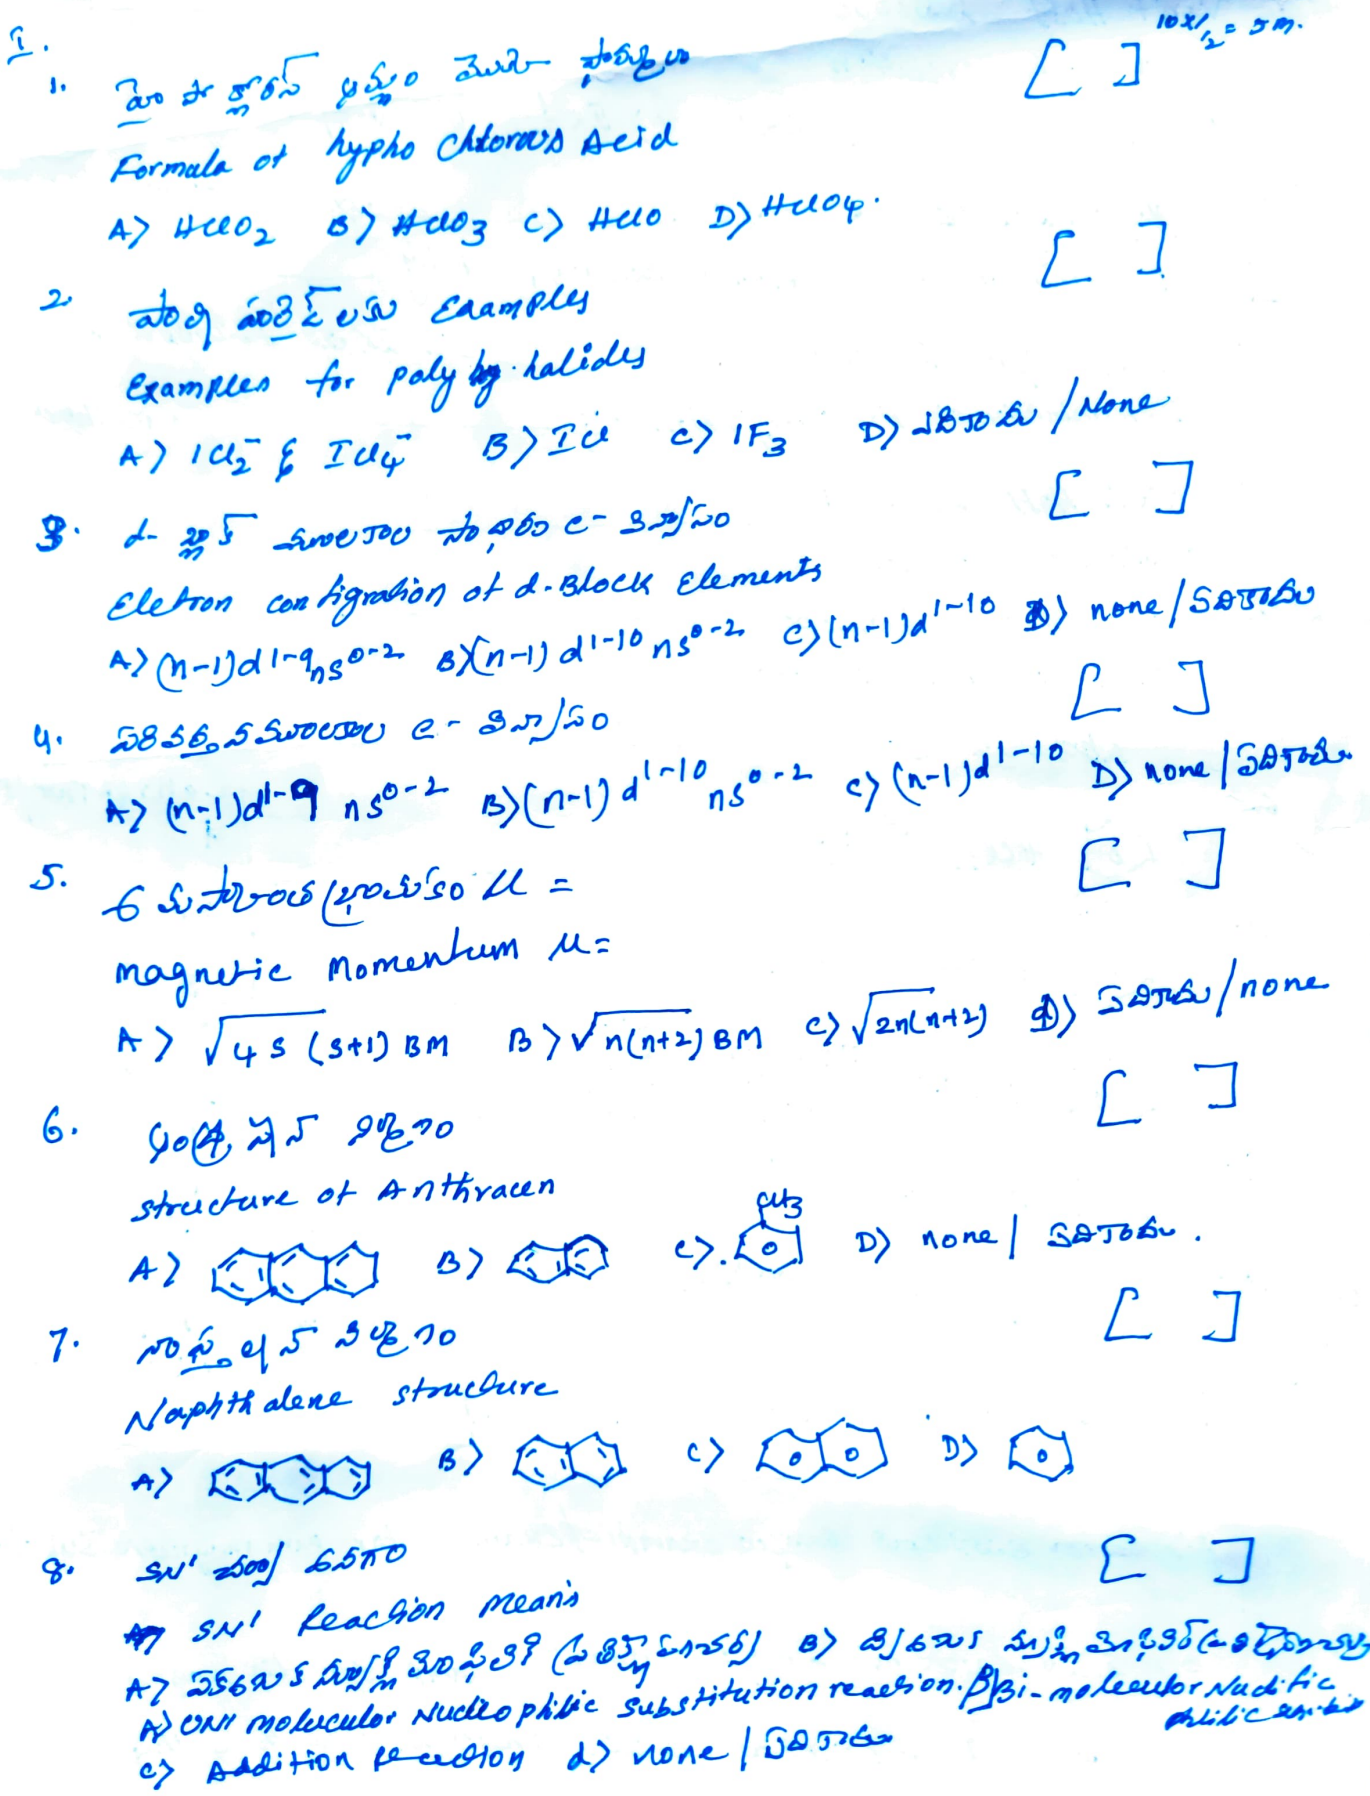 I.
10x1/2 = 5m.
1. హైపో క్లోరస్ ఆమ్లం యొక్క ఫార్ములా [ ]
Formula of hypho Chlorous Acid
A) HClO2 B) HClO3 C) HClO D) HClO4.
2. పాలి హాలైడ్లకు Examples [ ]
Examples for poly halides
A) ICl2⁻ & ICl4⁻ B) ICl C) IF3 D) ఏదికాదు / None
3. d- బ్లాక్ మూలకాల సాధారణ e- విన్యాసం [ ]
Eletron configration of d-Block Elements
A) (n-1)d1-9ns0-2 B) (n-1)d1-10 ns0-2 C) (n-1)d1-10 D) none / ఏదికాదు
4. పరివర్తన మూలకాల e- విన్యాసం [ ]
A) (n-1)d1-9 ns0-2 B) (n-1)d1-10 ns0-2 C) (n-1)d1-10 D) none / ఏదికాదు
5. μ = [ ]
magnetic Momentum μ=
A) √4s(s+1) BM B) √n(n+2) BM C) √2n(n+2) D) ఏదికాదు / none
6. ఆంత్రసీన్ నిర్మాణం [ ]
structure of Anthracen
A) B) C) CH3 D) none / ఏదికాదు.
7. నాఫ్తలీన్ నిర్మాణం [ ]
Naphthalene structure
A) B) C) D)
8. SN1 చర్య అనగా [ ]
SN1 Reaction means
A) ఏకఅణుక న్యూక్లియోఫిలిక్ ప్రతిక్షేపణచర్య B) ద్విఅణుక న్యూక్లియోఫిలిక్
A) UNI molucular Nucleophilic substitution reaction. B) Bi-moleculor
C) Addition Reaction d) none / ఏదికాదు